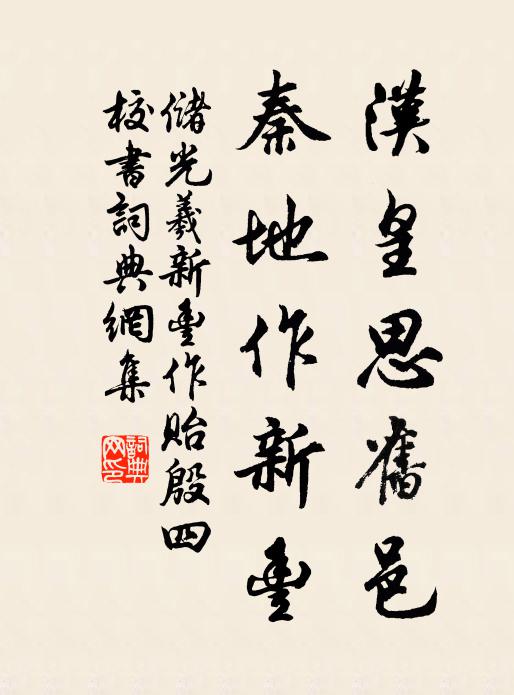 漢皇思舊邑
秦地作新豐
儲光羲新豐作貽殷四
校書詞典網集
詞典網印